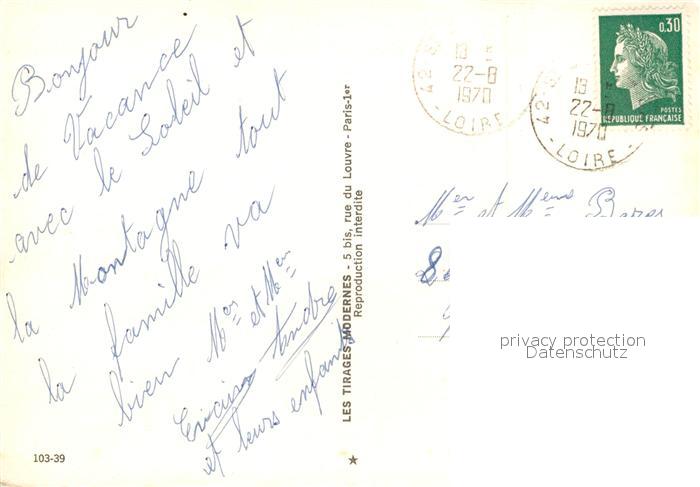 Bonjour
de Vacance
avec le Soleil et
la Montagne tout
la famille va
bien Mer et Mem
Andre
et leurs enfants
103-39
LES TIRAGES MODERNES - 5 bis, rue du Louvre - Paris-1er
Reproduction interdite
42
13
22-8
1970
- LOIRE -
42
13
22-8
1970
- LOIRE -
0,30
POSTES
RÉPUBLIQUE FRANÇAISE
Mer et Mem
8
privacy protection
Datenschutz